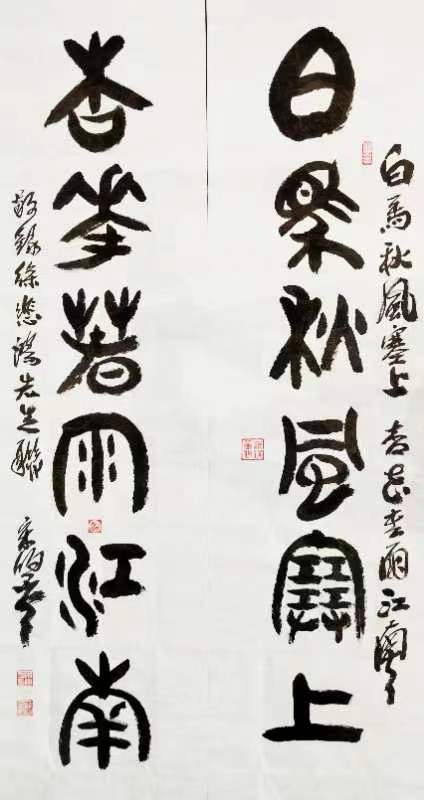 白馬秋風塞上 杏花春雨江南
白馬秋風塞上
杏花春雨江南
敬錄徐悲鴻先生聯 宋伯